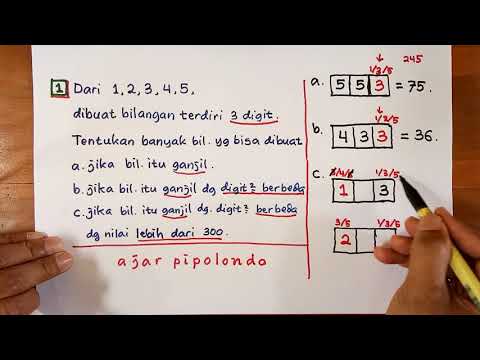 1 Dari 1, 2, 3, 4, 5,
dibuat bilangan terdiri 3 digit.
Tentukan banyak bil. yg bisa dibuat
a. jika bil. itu ganjil.
b. jika bil. itu ganjil dg digit² berbeda
c. jika bil. itu ganjil dg. digit² berbeda
dg nilai lebih dari 300.
ajar pipolondo
245
1/3/5
a. 5 5 3 = 75.
1/3/5
b. 4 3 3 = 36.
c. 3/4/5 1/3/5
1 3
3/5 1/3/5
2